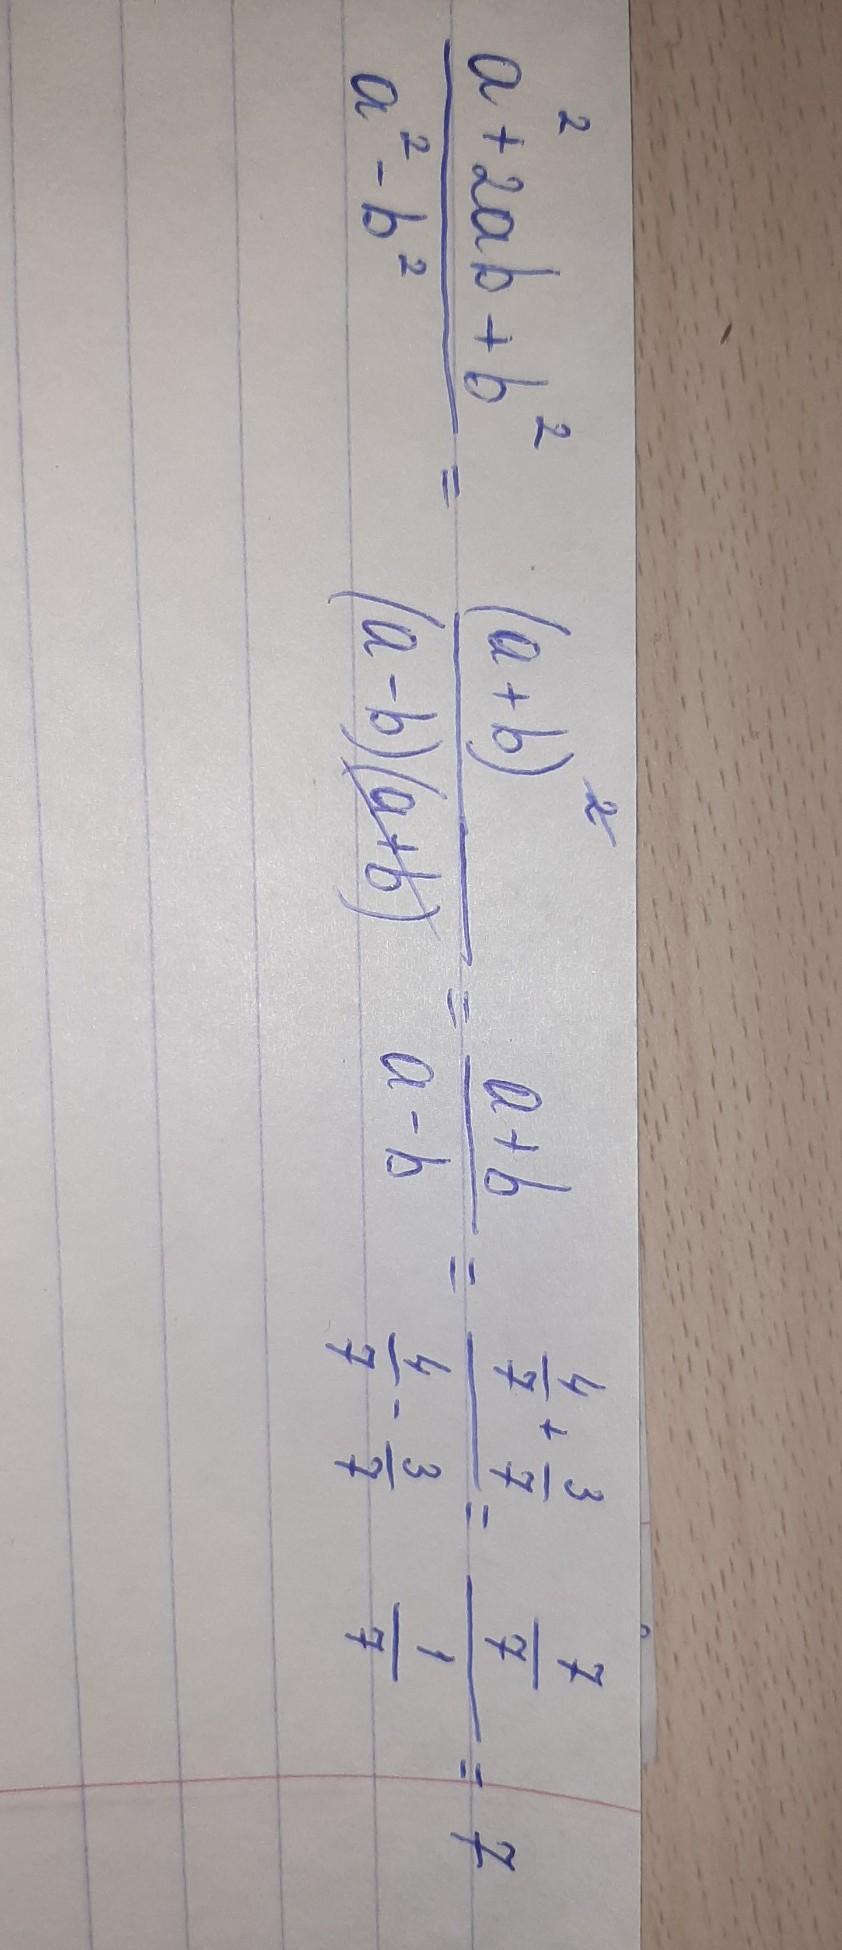 a² + 2ab + b² / a² - b² = (a+b)² / (a-b)(a+b) = a+b / a-b = 4/7 + 3/7 / 4/7 - 3/7 = 7/7 / 1/7 = 7